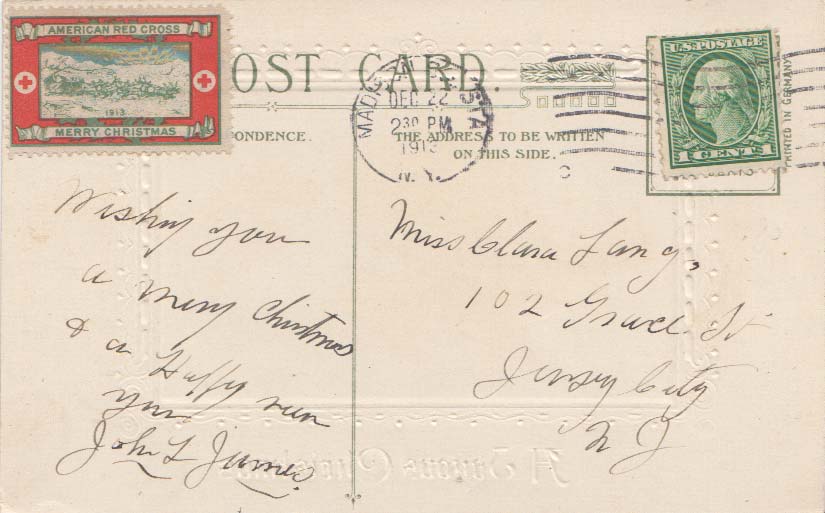 AMERICAN RED CROSS
1913
MERRY CHRISTMAS
POST CARD.
MADISON SQ. STA.
DEC 22
2 30 PM
1913
N.Y.
U.S. POSTAGE
1 CENT 1
PRINTED IN GERMANY
CORRESPONDENCE.
THE ADDRESS TO BE WRITTEN
ON THIS SIDE.
Wishing you
a merry christmas
& a Happy new
year
John L James.
Miss Clara Lang,
102 Grace St
Jersey City
N J
A Joyous Christmas